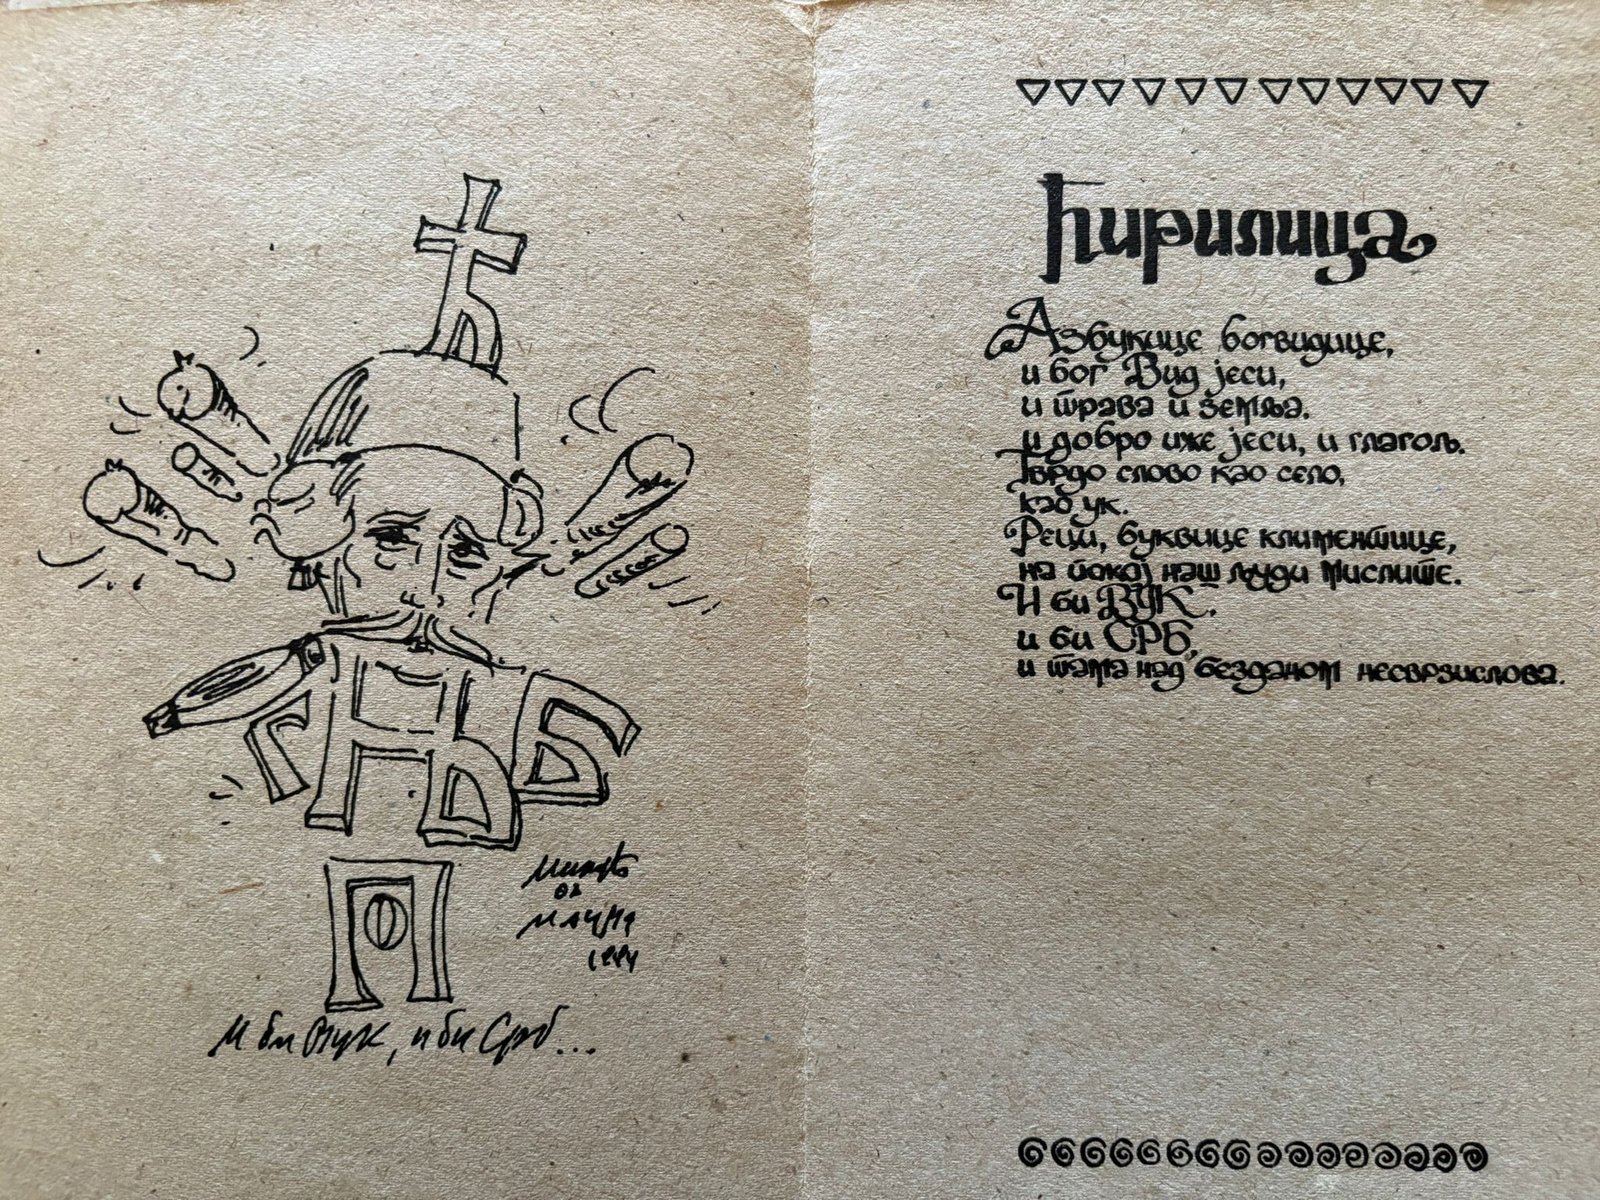 Ћ
ГЊБ
П
Милић
од
Мачве
И би Вук, и би Срб...
Ћирилица
Азбукице богвидице,
и бог Вид јеси,
и трава и земља.
и добро иже јеси, и глагољ.
Тврдо слово као село,
ук.
Реци, буквице климентице,
на покој наш људи мислите.
И би ВУК,
и би СРБ,
и тама над безданом несврзислова.